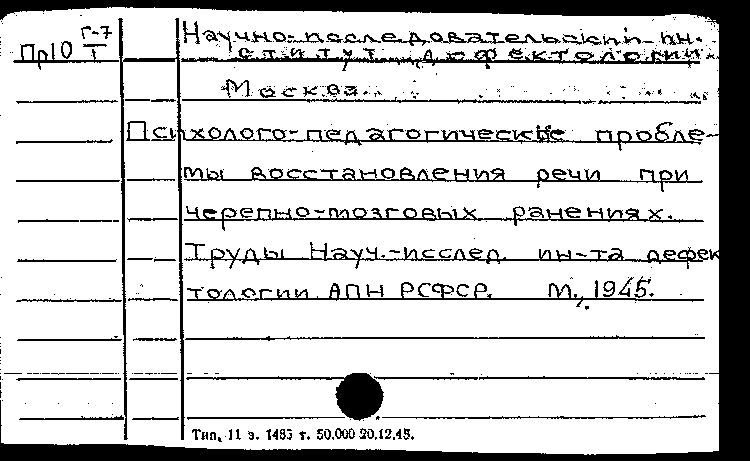 Г-7
Пр10 Т
Научно-исследовательский ин-
ститут дефектологии.
Москва.
Психолого-педагогические пробле-
мы восстановления речи при
черепно-мозговых ранениях.
Труды Науч.-исслед. ин-та дефек
тологии АПН РСФСР. М., 1945.
Тип. 11 з. 1485 т. 50.000 20.12.48.